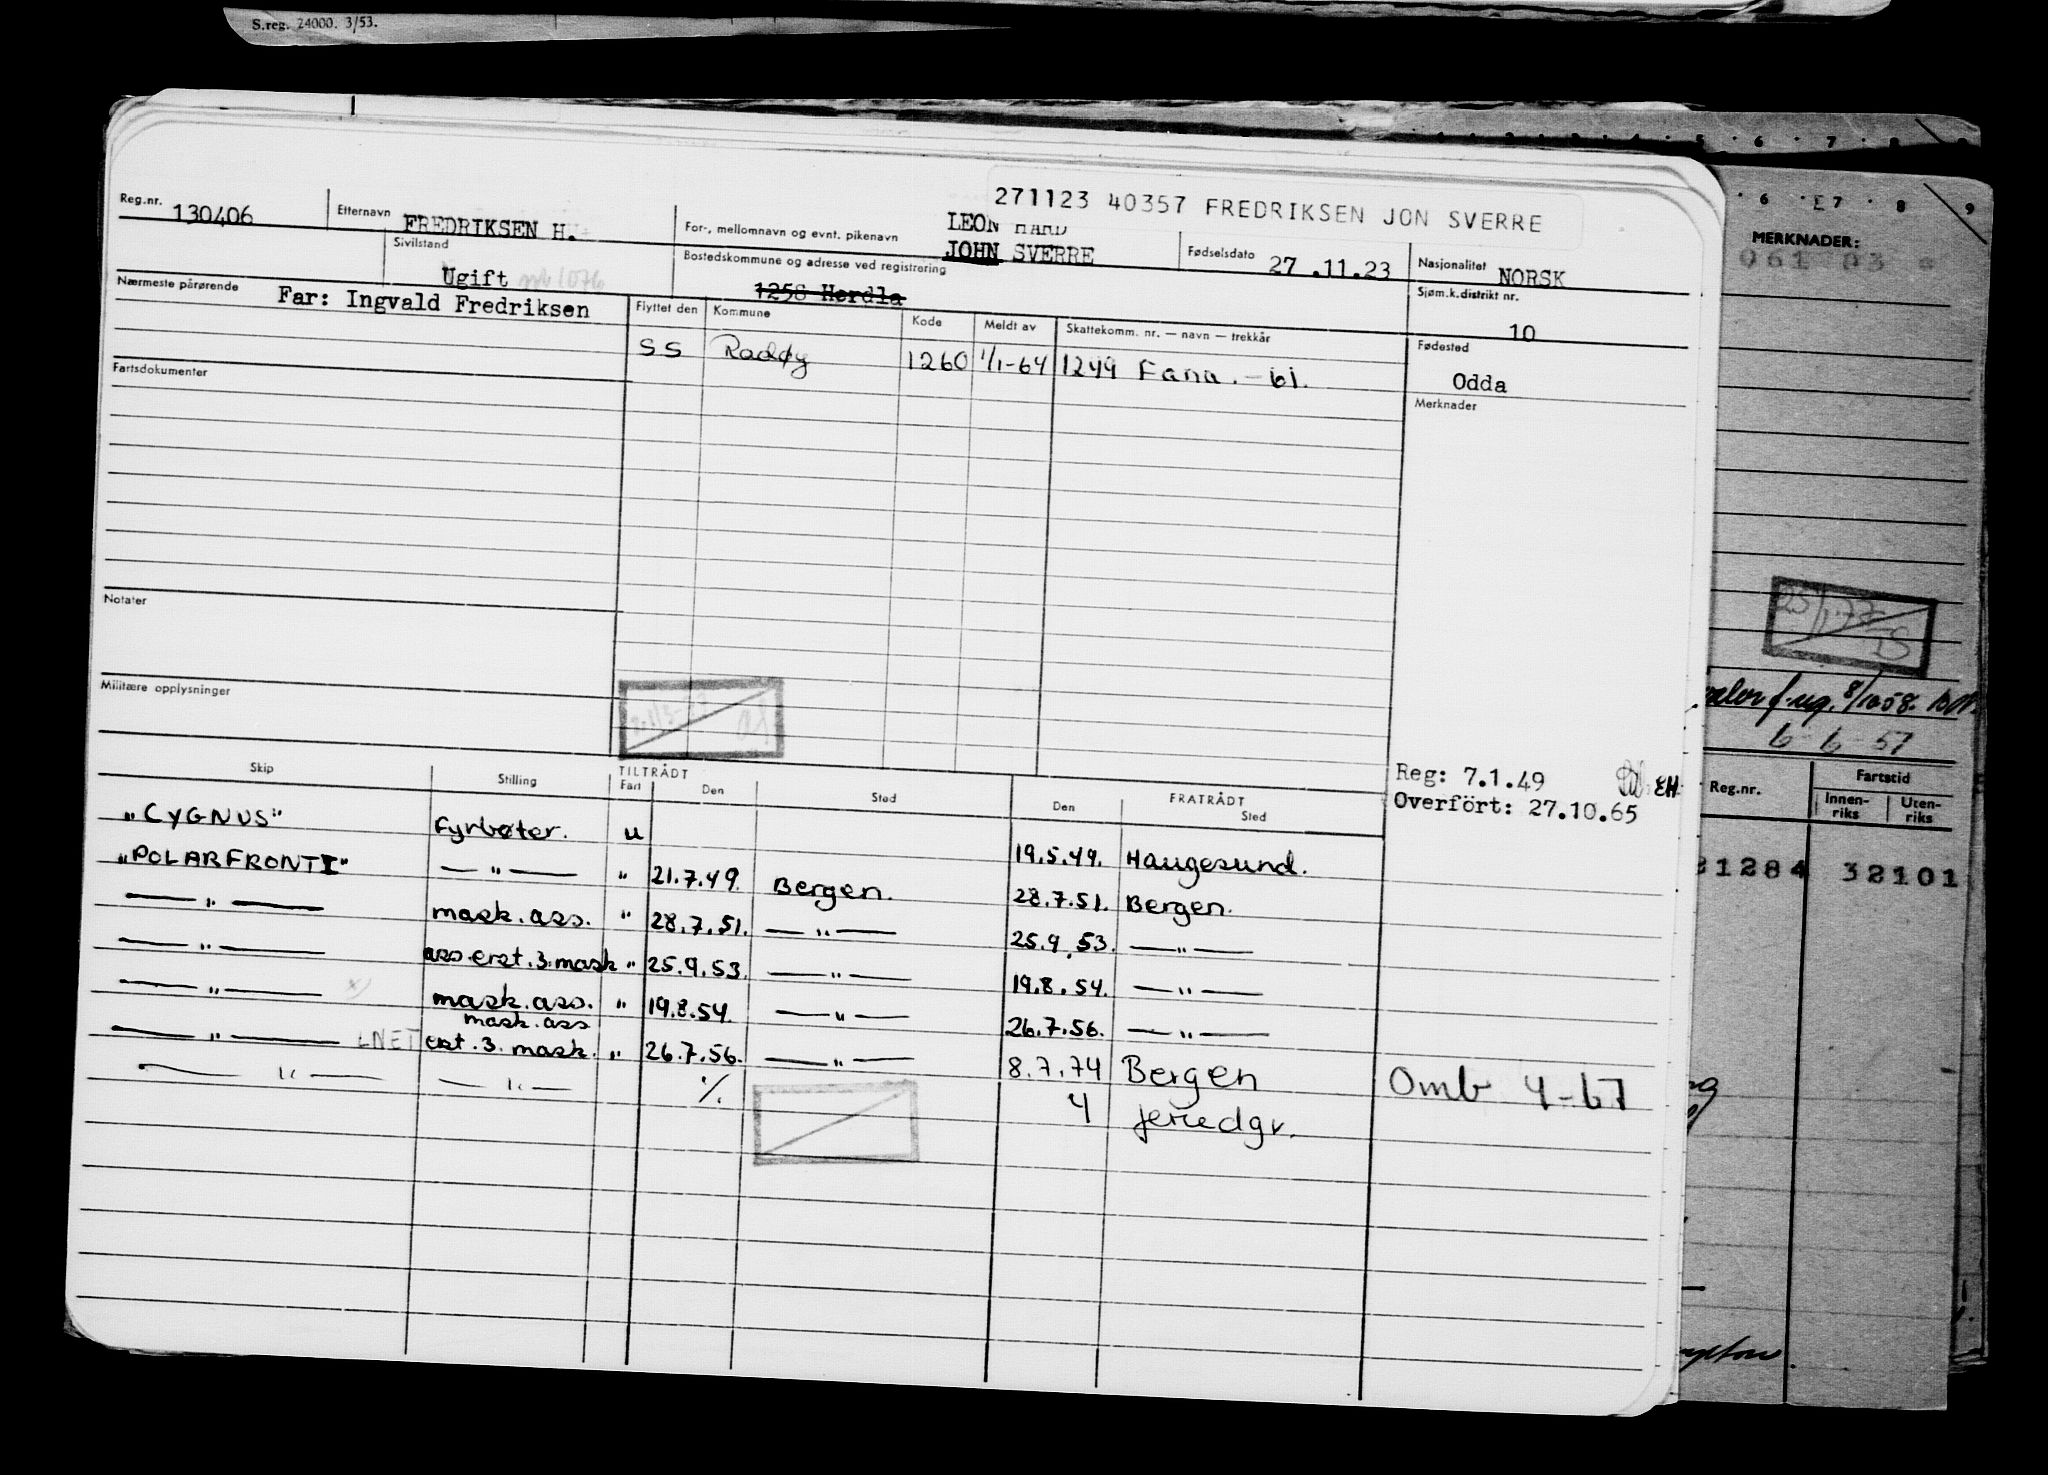 S.reg. 24000. 3/53.
271123 40357 FREDRIKSEN JON SVERRE
Reg.nr. 130406
Etternavn FREDRIKSEN H.
For-, mellomnavn og evnt. pikenavn LEON HARD
JOHN SVERRE
Fødselsdato 27.11.23
Nasjonalitet NORSK
Sivilstand Ugift
Bostedskommune og adresse ved registrering
1258 Herdla
Sjøm.k.distrikt nr. 10
Nærmeste pårørende Far: Ingvald Fredriksen
Flyttet den Kommune Kode Meldt av Skattekomm. nr. — navn — trekkår
SS Radøy 1260 1/1-64 1249 Fana.
Fødested
Odda
Fartsdokumenter
Merknader
Notater
Militære opplysninger
Reg: 7.1.49 EH
Overfört: 27.10.65
Skip Stilling TILTRÅDT FRATRÅDT
Fart Den Sted Den Sted
"CYGNUS" Fyrbøter. u 19.5.49. Haugesund.
"POLARFRONT I" — " — " 21.7.49. Bergen. 28.7.51. Bergen.
— " — mask. ass. " 28.7.51. — " — 25.9.53. — " —
— " — ass. erst. 3. mask " 25.9.53. — " — 19.8.54. — " —
— " — x) mask. ass. " 19.8.54. — " — 26.7.56. — " —
— " — LNET mask. ass
erst. 3. mask. " 26.7.56. — " — 8.7.74 Bergen
— " — — " — ./. 4 feriedgr.
Omb 4-67
6 7 8 9
6 7 8 9
MERKNADER:
6-6-57
Reg.nr. Fartstid
Innen-
riks
Uten-
riks
21284 32101